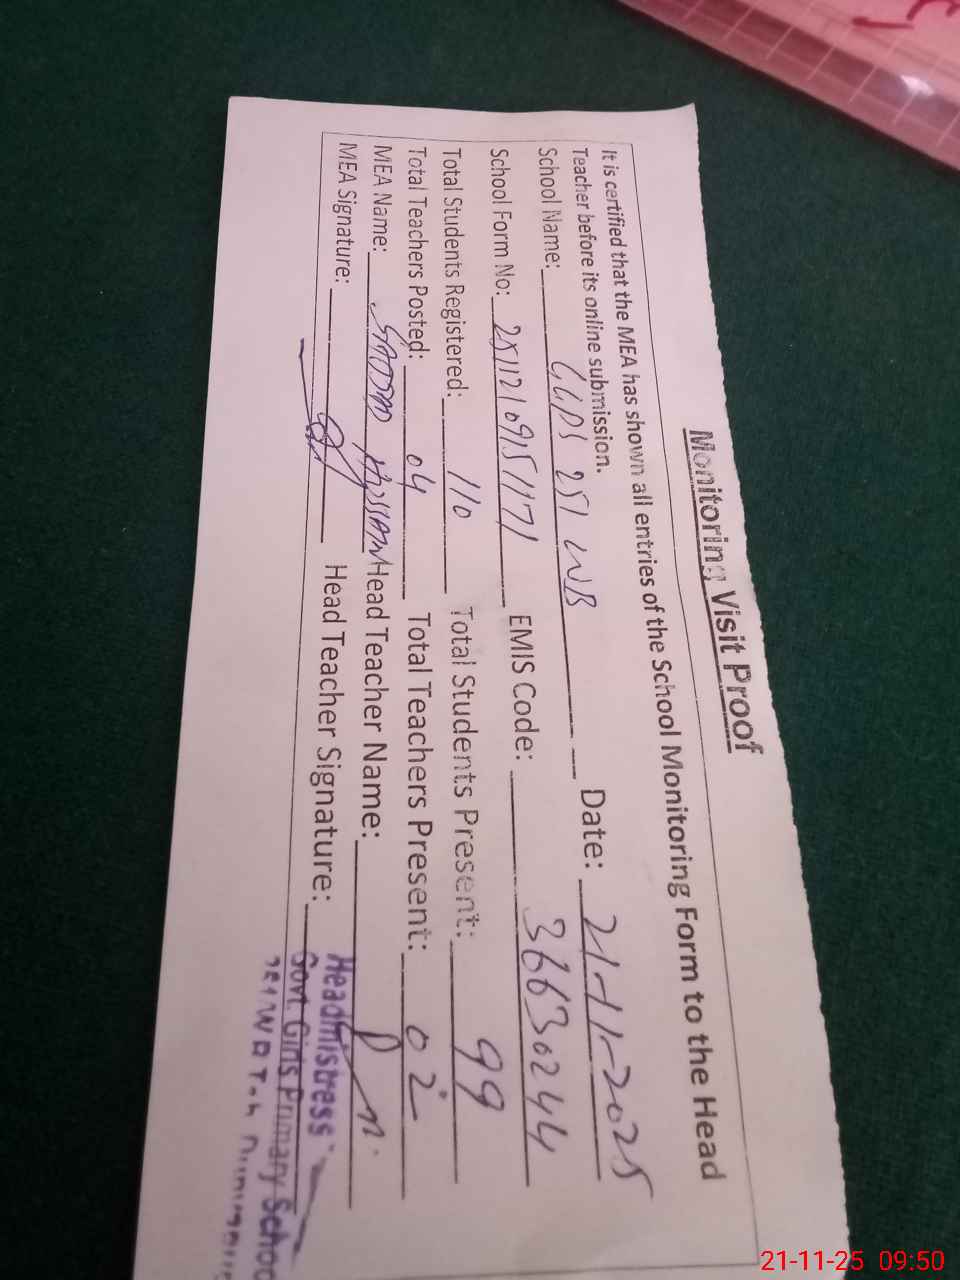 Monitoring Visit Proof
It is certified that the MEA has shown all entries of the School Monitoring Form to the Head
Teacher before its online submission.
School Name: GGPS 251 WB Date: 21-11-2025
School Form No: 25112109151171 EMIS Code: 36630244
Total Students Registered: 110 Total Students Present: 99
Total Teachers Posted: 04 Total Teachers Present: 02
MEA Name: SAJJAD HUSSAIN Head Teacher Name:
MEA Signature: Head Teacher Signature:
Headmistress
Govt. Girls Primary School
251/WB
21-11-25 09:50